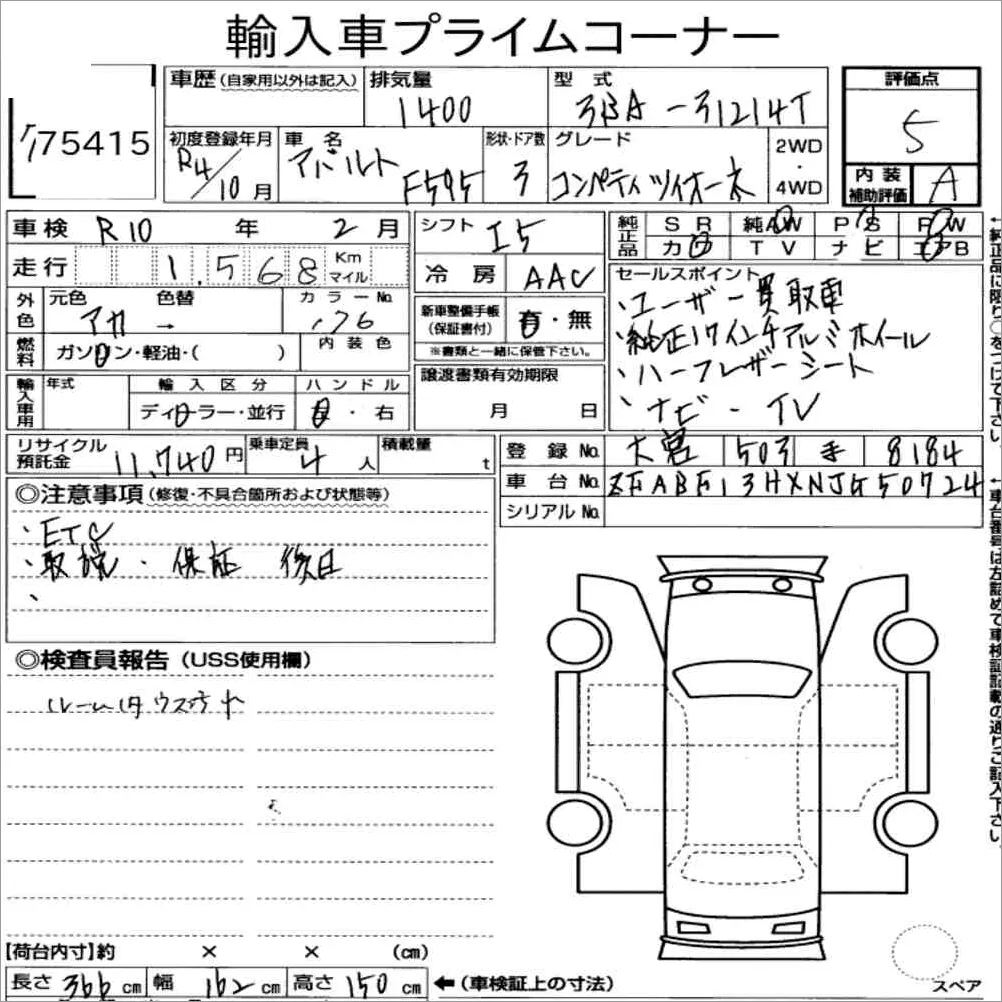 輸入車プライムコーナー
75415
車歴(自家用以外は記入)
排気量
1400
型式
3BA-31214T
評価点
5
初度登録年月
R4/10月
車名
アバルト
F595
形状・ドア数
3
グレード
コンペティツィオーネ
2WD
・
4WD
内装
補助評価
A
車検 R10 年 2月
走行 1,568 Km
マイル
シフト
I5
冷房 AAC
純正品
SR 純AW PS PW
カワ TV ナビ エアB
外色
元色 色替
アカ →
カラーNo.
176
燃料
ガソリン・軽油・( )
内装色
新車整備手帳
(保証書付)
有・無
※書類と一緒に保管下さい。
セールスポイント
・ユーザー買取車
・純正17インチアルミホイール
・ハーフレザーシート
・ナビ・TV
輸入車用
年式
輸入区分
ディーラー・並行
ハンドル
左・右
譲渡書類有効期限
月 日
リサイクル
預託金
11,740円
乗車定員
4人
積載量
t
登録No. 大宮 503 8184
車台No. ZFABF13HXNJG50724
シリアルNo.
◎注意事項(修復・不具合箇所および状態等)
・ETC
・取説・保証 後日
、
◎検査員報告(USS使用欄)
ルーム内ウスヨゴレ
←純正品に限り○をつけて下さい。
←車台番号は左詰めで車検証記載の通りご記入下さい。
【荷台内寸】約 × × (cm)
長さ 366 cm 幅 162 cm 高さ 150 cm ←(車検証上の寸法)
スペア